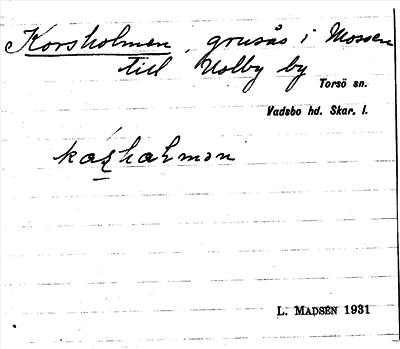 Korsholmen, grusås i Mossen
till Uslby by
Torsö sn.
Vadsbo hd. Skar. l.
kåsholmen
L. MADSÉN 1931